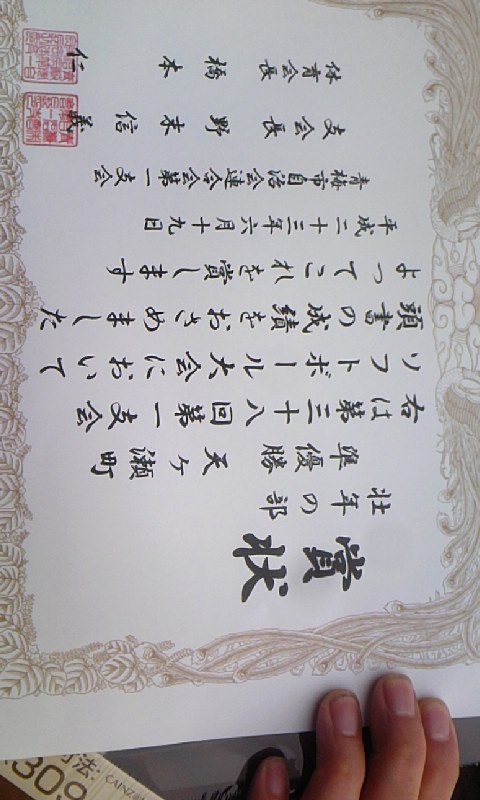 賞状
壮年の部
準優勝 天ヶ瀬町
右は第三十八回第一支会
ソフトボール大会において
頭書の成績をおさめました
よってこれを賞します
平成二十三年六月十九日
青梅市自治会連合会第一支会
支会長 野末信義
体育会長 橋本仁
法:
309
CAINZ